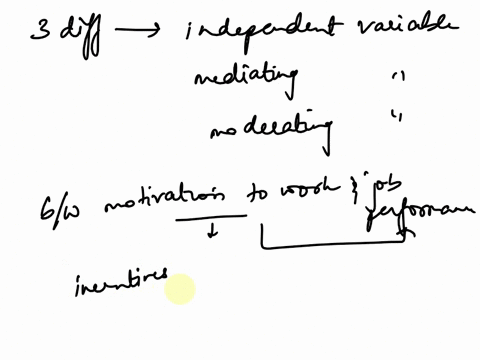 3 diff → independent variable
mediating "
moderating "
b/w motivation to work & job performance
incentives